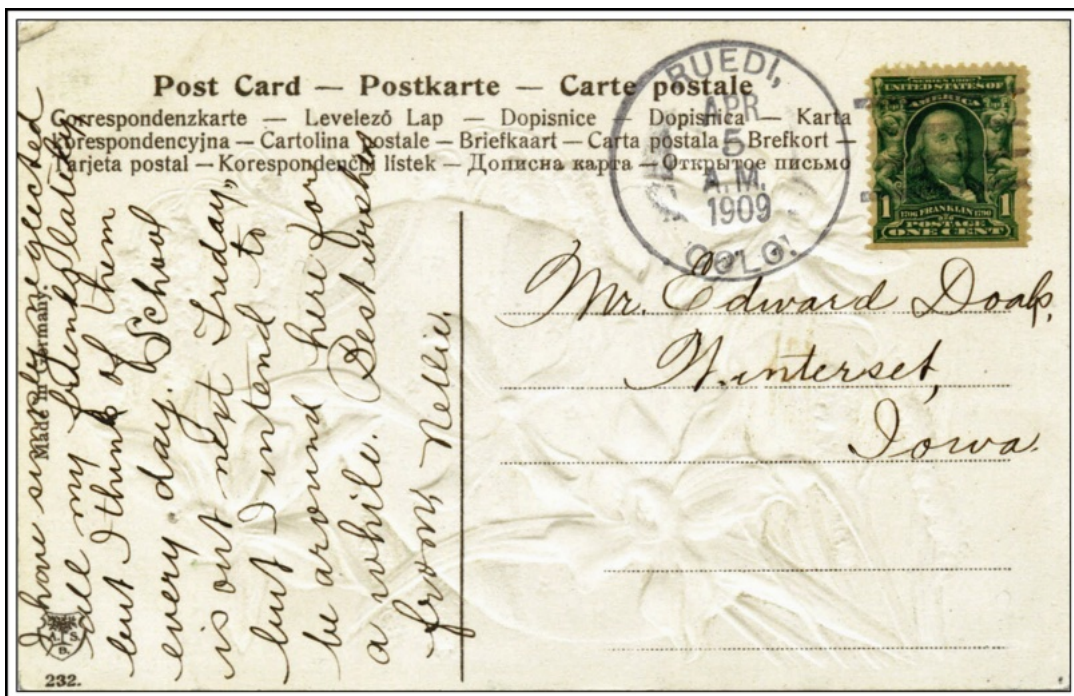 Post Card — Postkarte — Carte postale
Correspondenzkarte — Levelező Lap — Dopisnice — Dopisnica — Karta
korespondencyjna — Cartolina postale — Briefkaart — Carta postala — Brefkort —
Tarjeta postal — Korespondenčni listek — Дописна карта — Открытое письмо
RUEDI,
APR
5
A.M.
1909
COLO.
SERIES 1902
UNITED STATES OF
AMERICA
1 1706 FRANKLIN 1790 1
POSTAGE
ONE CENT
Mr. Edward Doak,
Winterset,
Iowa.
I have surely neglected
all my friends lately
but I think of them
every day. School
is out next Friday"
but I intend to
be around here for
a while. Best wishes
from, Nellie.
Made in Germany.
A.S.
B.
232.